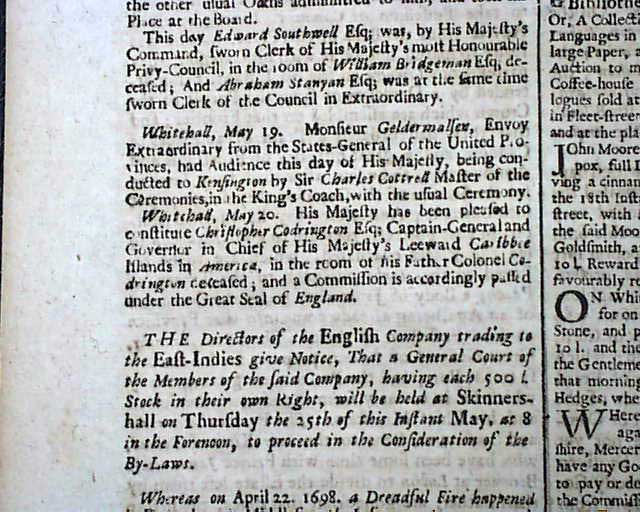 the other usual Oaths administred to him, and took his
Place at the Board.
This day Edward Southwell Esq; was, by His Majesty's
Command, sworn Clerk of His Majesty's most Honourable
Privy-Council, in the room of William Bridgeman Esq, de-
ceased; And Abraham Stanyan Esq; was at the same time
sworn Clerk of the Council in Extraordinary.
Whitehall, May 19. Monsieur Geldermalsen, Envoy
Extraordinary from the States-General of the United Pro-
vinces, had Audience this day of His Majesty, being con-
ducted to Kensington by Sir Charles Cottrell Master of the
Ceremonies, in the King's Coach, with the usual Ceremony.
Whitehall, May 20. His Majesty has been pleased to
constitute Christopher Codrington Esq; Captain-General and
Governor in Chief of His Majesty's Leeward Caribbee
Islands in America, in the room of his Father Colonel Co-
drington deceased; and a Commission is accordingly passed
under the Great Seal of England.
THE Directors of the English Company trading to
the East-Indies give Notice, That a General Court of
the Members of the said Company, having each 500 l.
Stock in their own Right, will be held at Skinners-
hall on Thursday the 25th of this Instant May, at 8
in the Forenoon, to proceed in the Consideration of the
By-Laws.
Whereas on April 22. 1698. a Dreadful Fire happened
& Bibliothe
Or, A Collecti
Languages in
large Paper, a
Auction to m
Coffee-house
logues sold at
in Fleet-street
and at the pla
JOhn Moore
pox, full f
ving a cinnam
the 18th Inst
street, with a
the said Moo
Goldsmith, a
10 l. Reward
favourably re
ON Whi
for on
Stone, and p
10 l. and the
the Gentleme
that morning
Hedges, whe
WHere
aga
shire, Mercer
have any Go
to pay or de
the Commiss